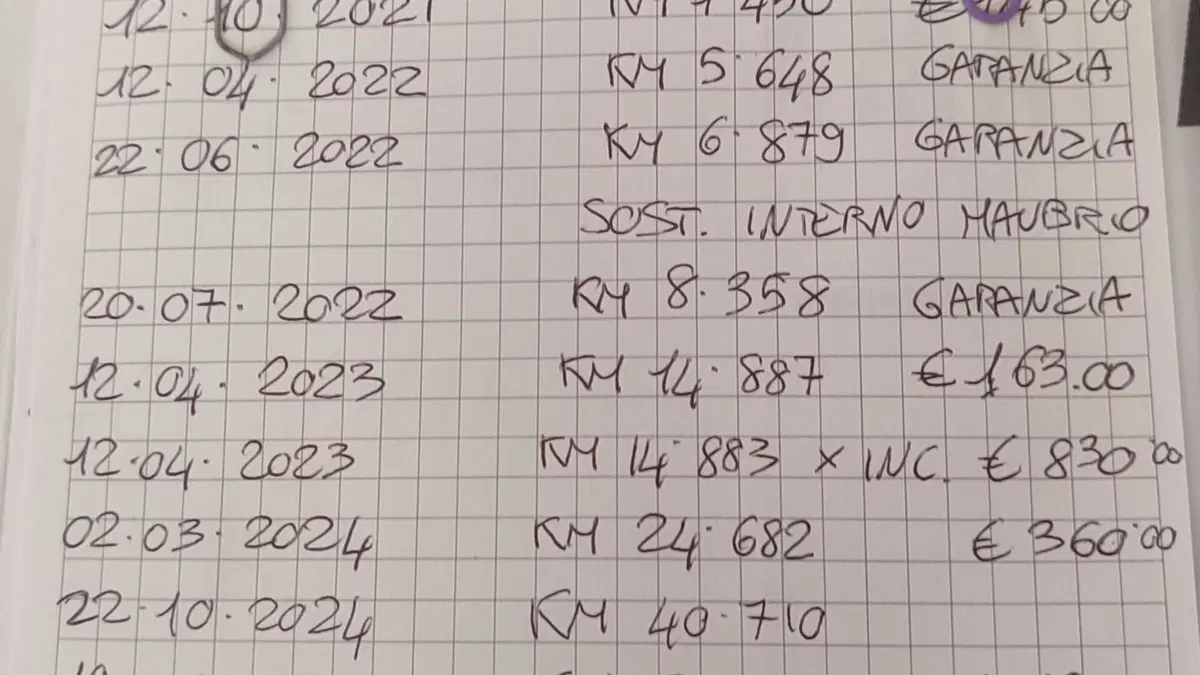 12. 10. 2021
12. 04. 2022 KM 5.648 GARANZIA
22.06. 2022 KM 6.879 GARANZIA
SOST. INTERNO MAUBRIO
20.07. 2022 KM 8.358 GARANZIA
12.04. 2023 KM 14.887 € 163.00
12.04. 2023 KM 14.883 x INC. € 830.00
02.03. 2024 KM 24.682 € 360.00
22.10.2024 KM 40.710